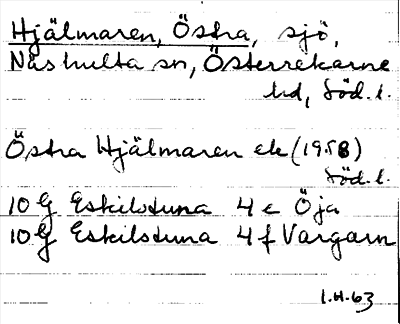 Hjälmaren, Östra, sjö,
Näshulta sn, Österrekarne
hd, Söd. l.
Östra Hjälmaren ek (1958)
Söd. l.
10 G Eskilstuna 4 e Öja
10 G Eskilstuna 4 f Vargarn
I.H-63